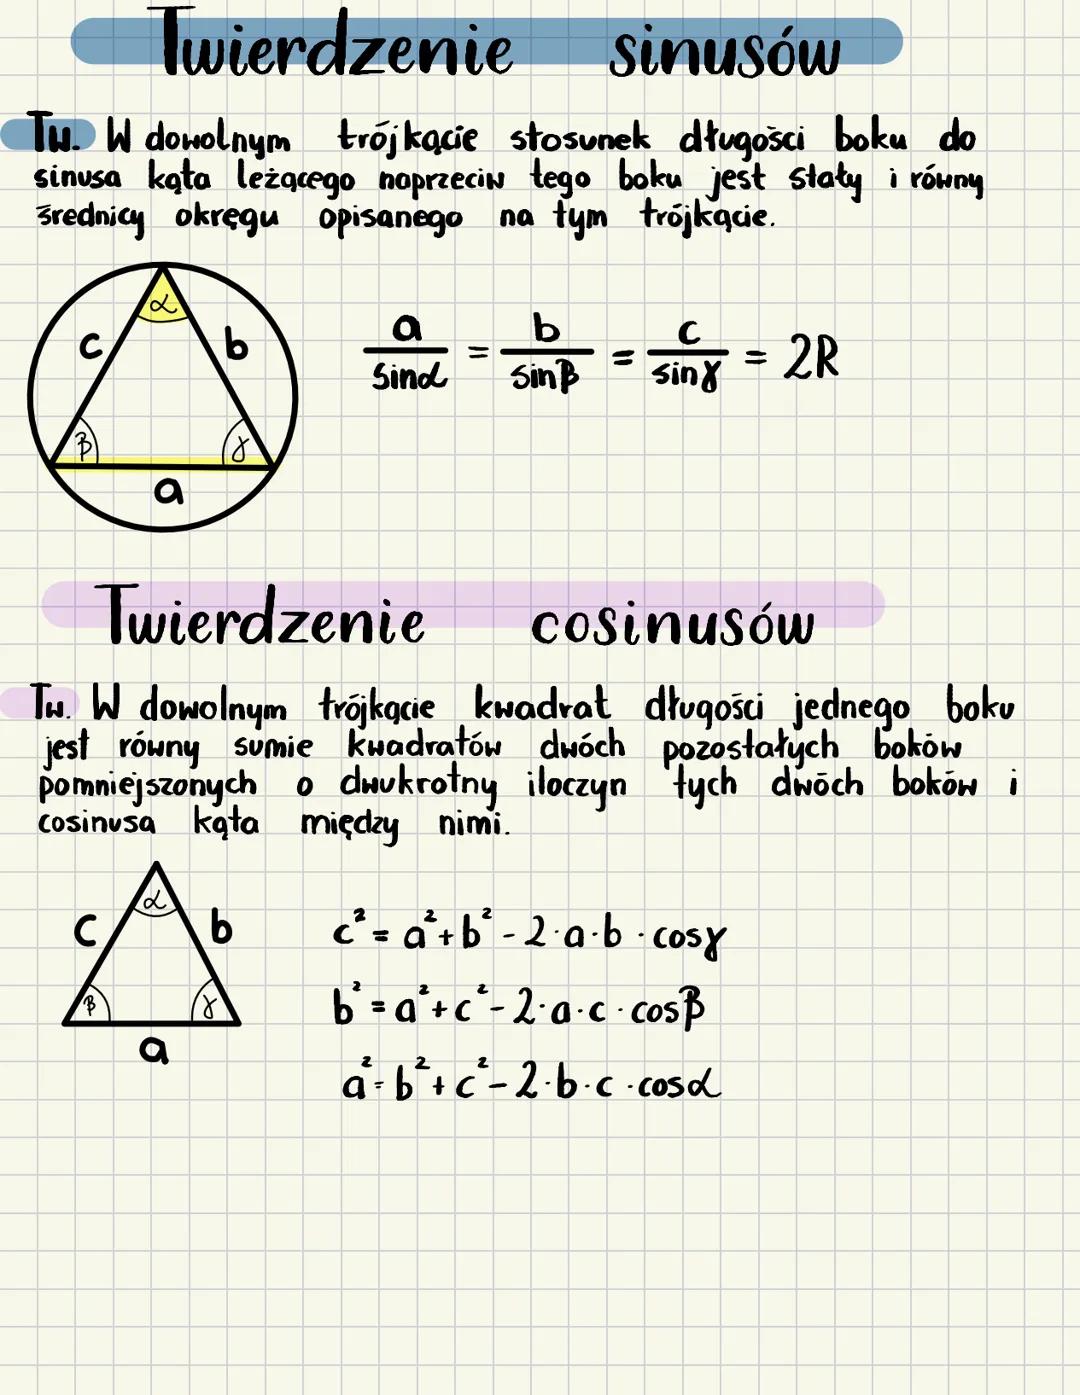 Twierdzenie sinusów
Tw. W dowolnym trójkącie stosunek długości boku do
sinusa kąta leżącego naprzeciw tego boku jest stały i równy
średnicy okręgu opisanego na tym trójkącie.
α
c b
β γ
a
a/sinα = b/sinβ = c/sinγ = 2R
Twierdzenie cosinusów
Tw. W dowolnym trójkącie kwadrat długości jednego boku
jest równy sumie kwadratów dwóch pozostałych boków
pomniejszonych o dwukrotny iloczyn tych dwóch boków i
cosinusa kąta między nimi.
α
c b
β γ
a
c² = a² + b² - 2·a·b·cosγ
b² = a² + c² - 2·a·c·cosβ
a² = b² + c² - 2·b·c·cosα